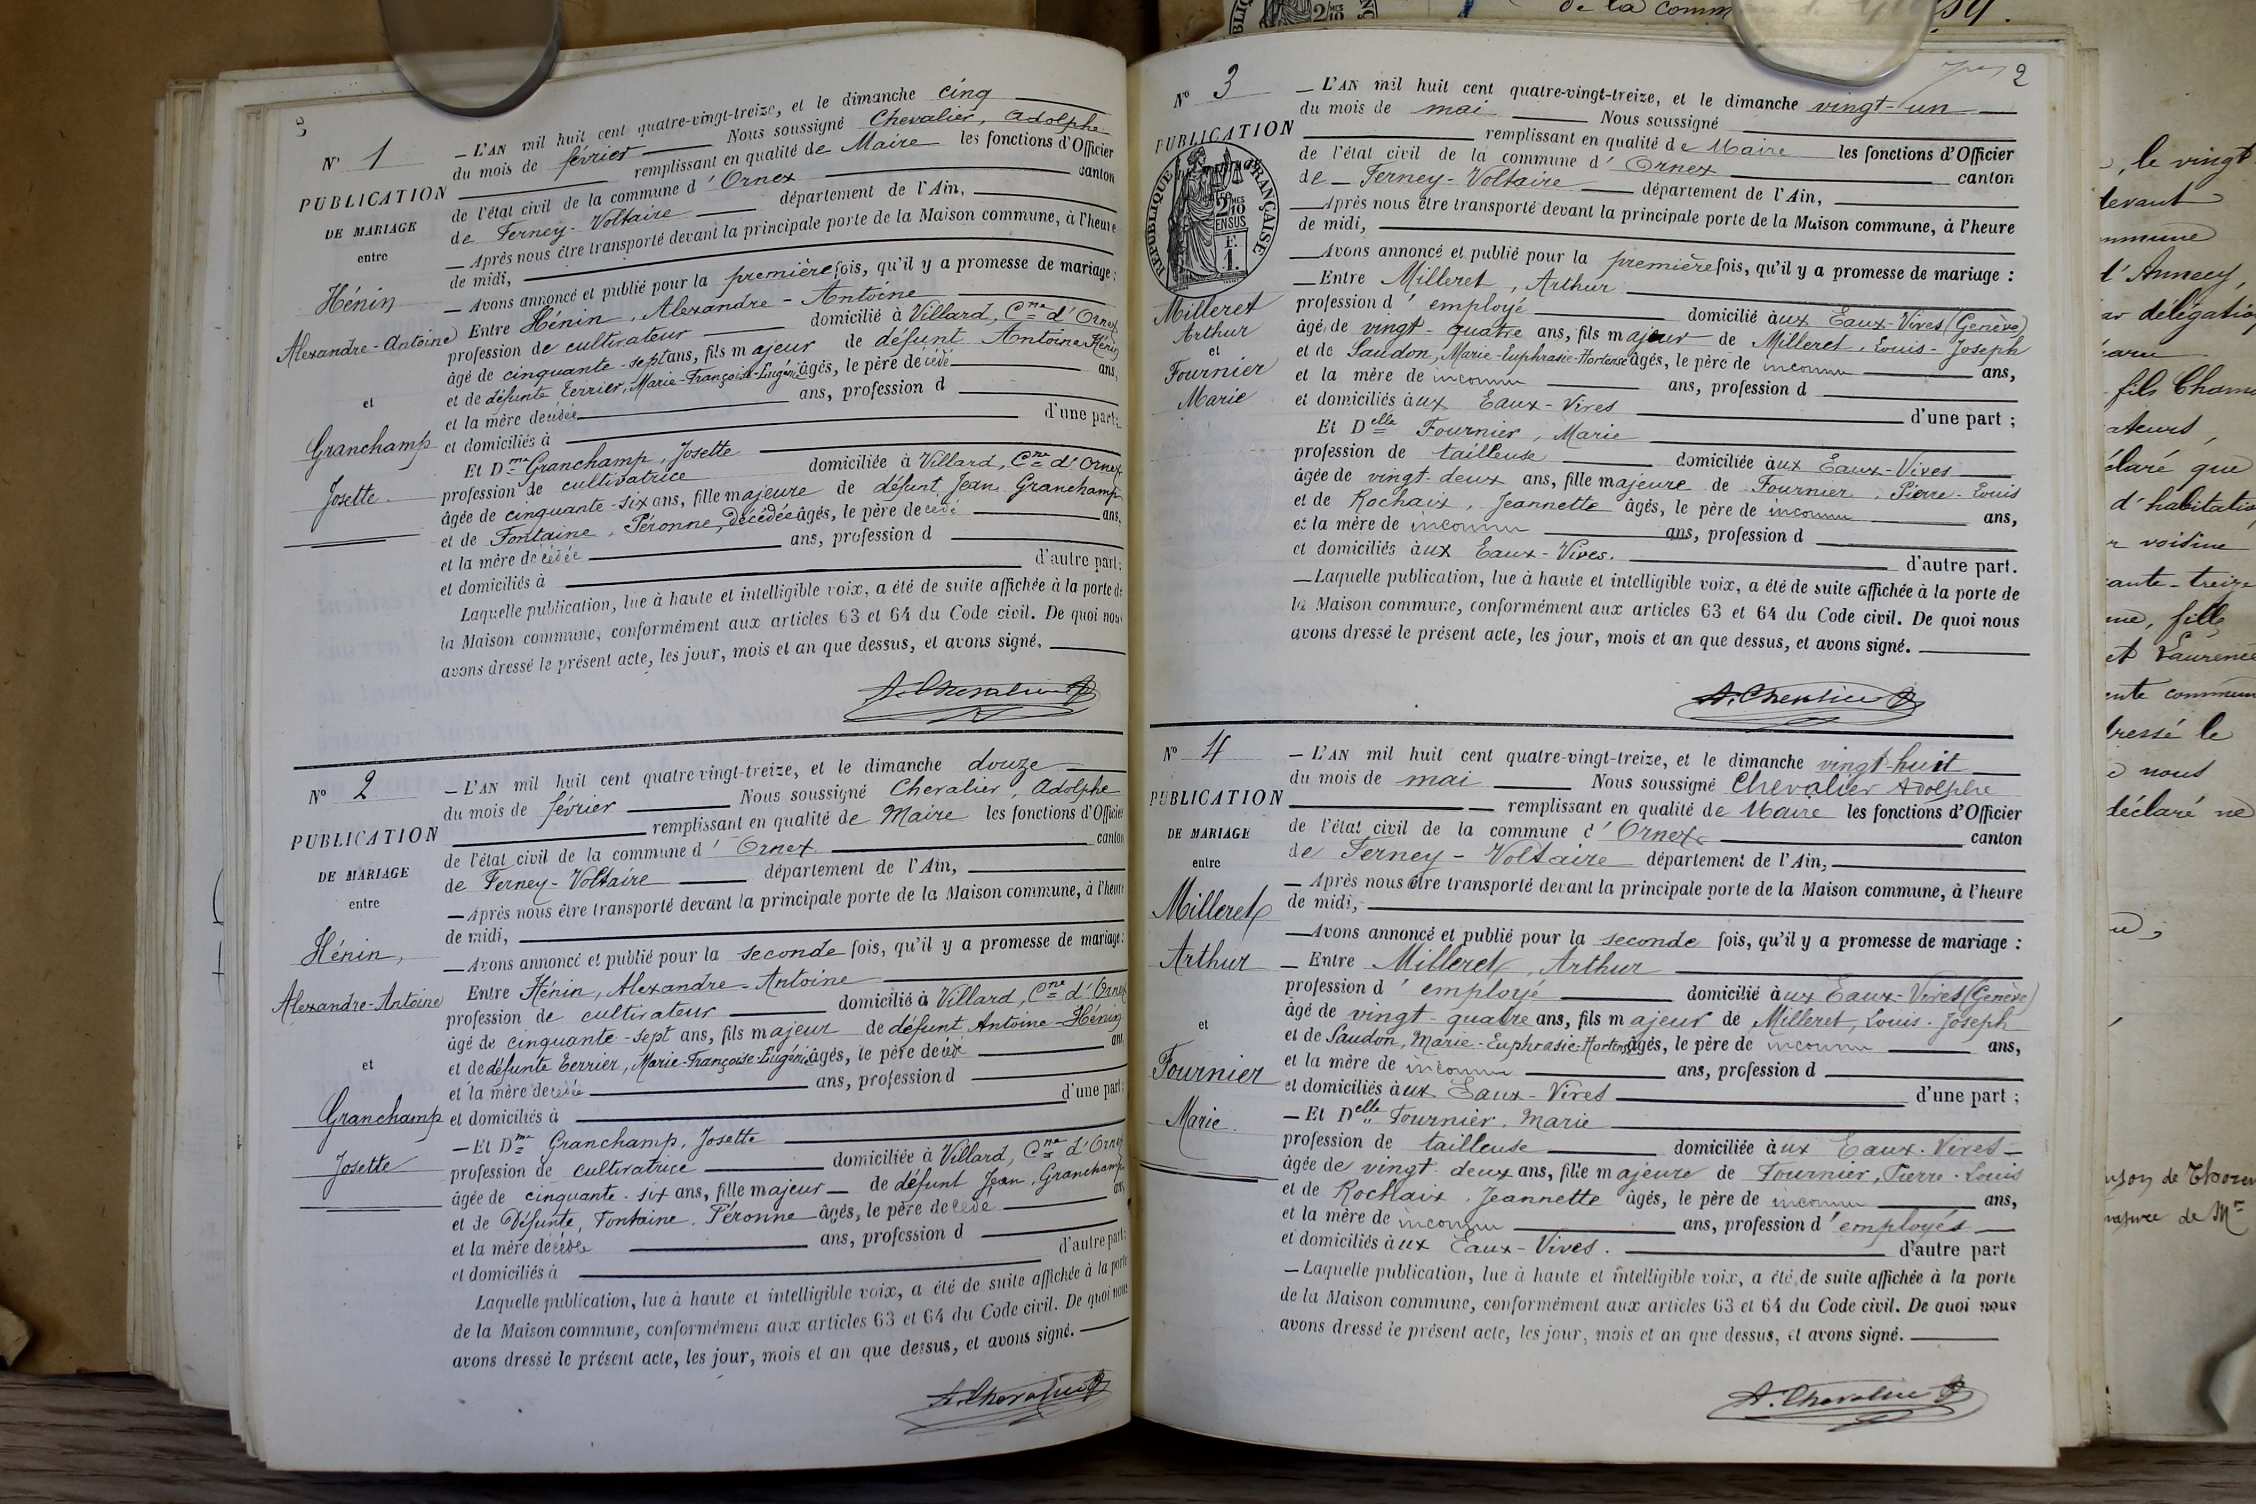 N° 1
PUBLICATION
DE MARIAGE
entre
Hénin
Alexandre-Antoine
et
Granchamp
Josette
— L'AN mil huit cent quatre-vingt-treize, et le dimanche cinq
du mois de février Nous soussigné Chevalier, Adolphe
remplissant en qualité de Maire les fonctions d'Officier
de l'état civil de la commune d'Ornex canton
de Ferney-Voltaire département de l'Ain,
— Après nous être transporté devant la principale porte de la Maison commune, à l'heure
de midi,
— Avons annoncé et publié pour la première fois, qu'il y a promesse de mariage :
Entre Hénin, Alexandre-Antoine
profession de cultivateur domicilié à Villard, Cne d'Ornex
âgé de cinquante-sept ans, fils majeur de défunt Antoine Hénin
et de défunte Terrier, Marie-Françoise-Eugénie âgés, le père décédé ans,
et la mère décédée ans, profession d
et domiciliés à d'une part ;
Et Dme Granchamp, Josette
profession de cultivatrice domiciliée à Villard, Cne d'Ornex
âgée de cinquante-six ans, fille majeure de défunt Jean Granchamp
et de Fontaine, Péronne, décédée âgés, le père décédé ans,
et la mère décédée ans, profession d
et domiciliés à d'autre part ;
Laquelle publication, lue à haute et intelligible voix, a été de suite affichée à la porte de
la Maison commune, conformément aux articles 63 et 64 du Code civil. De quoi nous
avons dressé le présent acte, les jour, mois et an que dessus, et avons signé.
A. Chevalier
N° 2
PUBLICATION
DE MARIAGE
entre
Hénin,
Alexandre-Antoine
et
Granchamp
Josette
— L'AN mil huit cent quatre vingt-treize, et le dimanche douze
du mois de février Nous soussigné Chevalier, Adolphe
remplissant en qualité de Maire les fonctions d'Officier
de l'état civil de la commune d'Ornex canton
de Ferney-Voltaire département de l'Ain,
— Après nous être transporté devant la principale porte de la Maison commune, à l'heure
de midi,
— Avons annoncé et publié pour la seconde fois, qu'il y a promesse de mariage :
Entre Hénin, Alexandre-Antoine
profession de cultivateur domicilié à Villard, Cne d'Ornex
âgé de cinquante-sept ans, fils majeur de défunt Antoine-Hénin
et de défunte Terrier, Marie-Françoise-Eugénie âgés, le père ans
et la mère décédée ans, profession d
et domiciliés à d'une part ;
— Et Dme Granchamp, Josette
profession de cultivatrice domiciliée à Villard, Cne d'Ornex
âgée de cinquante-six ans, fille majeur de défunt Jean, Granchamp
et de Défunte, Fontaine, Péronne âgés, le père décédé ans
et la mère décédée ans, profession d
et domiciliés à d'autre part ;
Laquelle publication, lue à haute et intelligible voix, a été de suite affichée à la porte
de la Maison commune, conformément aux articles 63 et 64 du Code civil. De quoi nous
avons dressé le présent acte, les jour, mois et an que dessus, et avons signé.
A. Chevalier
2
N° 3
PUBLICATION
RÉPUBLIQUE FRANÇAISE
2/10 MES
EN SUS
F
1
Milleret
Arthur
et
Fournier
Marie
— L'AN mil huit cent quatre-vingt-treize, et le dimanche vingt-un
du mois de mai Nous soussigné
remplissant en qualité de Maire les fonctions d'Officier
de l'état civil de la commune d'Ornex canton
de Ferney-Voltaire département de l'Ain,
— Après nous être transporté devant la principale porte de la Maison commune, à l'heure
de midi,
— Avons annoncé et publié pour la première fois, qu'il y a promesse de mariage :
— Entre Milleret, Arthur
profession d'employé domicilié aux Eaux-Vives (Genève)
âgé de vingt-quatre ans, fils majeur de Milleret, Louis-Joseph
et de Saudon, Marie-Euphrasie-Hortense âgés, le père de inconnu ans,
et la mère de inconnu ans, profession d
et domiciliés aux Eaux-Vives d'une part ;
Et Delle Fournier, Marie
profession de tailleuse domiciliée aux Eaux-Vives
âgée de vingt-deux ans, fille majeure de Fournier, Pierre-Louis
et de Rochaix, Jeannette âgés, le père de inconnu ans,
et la mère de inconnu ans, profession d
et domiciliés aux Eaux-Vives. d'autre part.
— Laquelle publication, lue à haute et intelligible voix, a été de suite affichée à la porte de
la Maison commune, conformément aux articles 63 et 64 du Code civil. De quoi nous
avons dressé le présent acte, les jour, mois et an que dessus, et avons signé.
A. Chevalier
N° 4
PUBLICATION
DE MARIAGE
entre
Milleret
Arthur
et
Fournier
Marie.
— L'AN mil huit cent quatre-vingt-treize, et le dimanche vingt-huit
du mois de mai Nous soussigné Chevalier Adolphe
remplissant en qualité de Maire les fonctions d'Officier
de l'état civil de la commune d'Ornex canton
de Ferney-Voltaire département de l'Ain,
— Après nous être transporté devant la principale porte de la Maison commune, à l'heure
de midi,
— Avons annoncé et publié pour la seconde fois, qu'il y a promesse de mariage :
— Entre Milleret, Arthur
profession d'employé domicilié aux Eaux-Vives (Genève)
âgé de vingt-quatre ans, fils majeur de Milleret, Louis-Joseph
et de Saudon, Marie-Euphrasie-Hortense âgés, le père de inconnu ans,
et la mère de inconnu ans, profession d
et domiciliés aux Eaux-Vives d'une part ;
— Et Delle Fournier, Marie
profession de tailleuse domiciliée aux Eaux-Vives
âgée de vingt-deux ans, fille majeure de Fournier, Pierre-Louis
et de Rochaix, Jeannette âgés, le père de inconnu ans,
et la mère de inconnu ans, profession d'employés
et domiciliés aux Eaux-Vives. d'autre part
— Laquelle publication, lue à haute et intelligible voix, a été de suite affichée à la porte
de la Maison commune, conformément aux articles 63 et 64 du Code civil. De quoi nous
avons dressé le présent acte, les jour, mois et an que dessus, et avons signé.
A. Chevalier
de la comm
, le vingt
devant
d'Annecy,
délégation
fils
que
d'habitation
voisine
ante-treize
fille
et Laurence
ressé le
nous
déclaré ne
de
de Mr